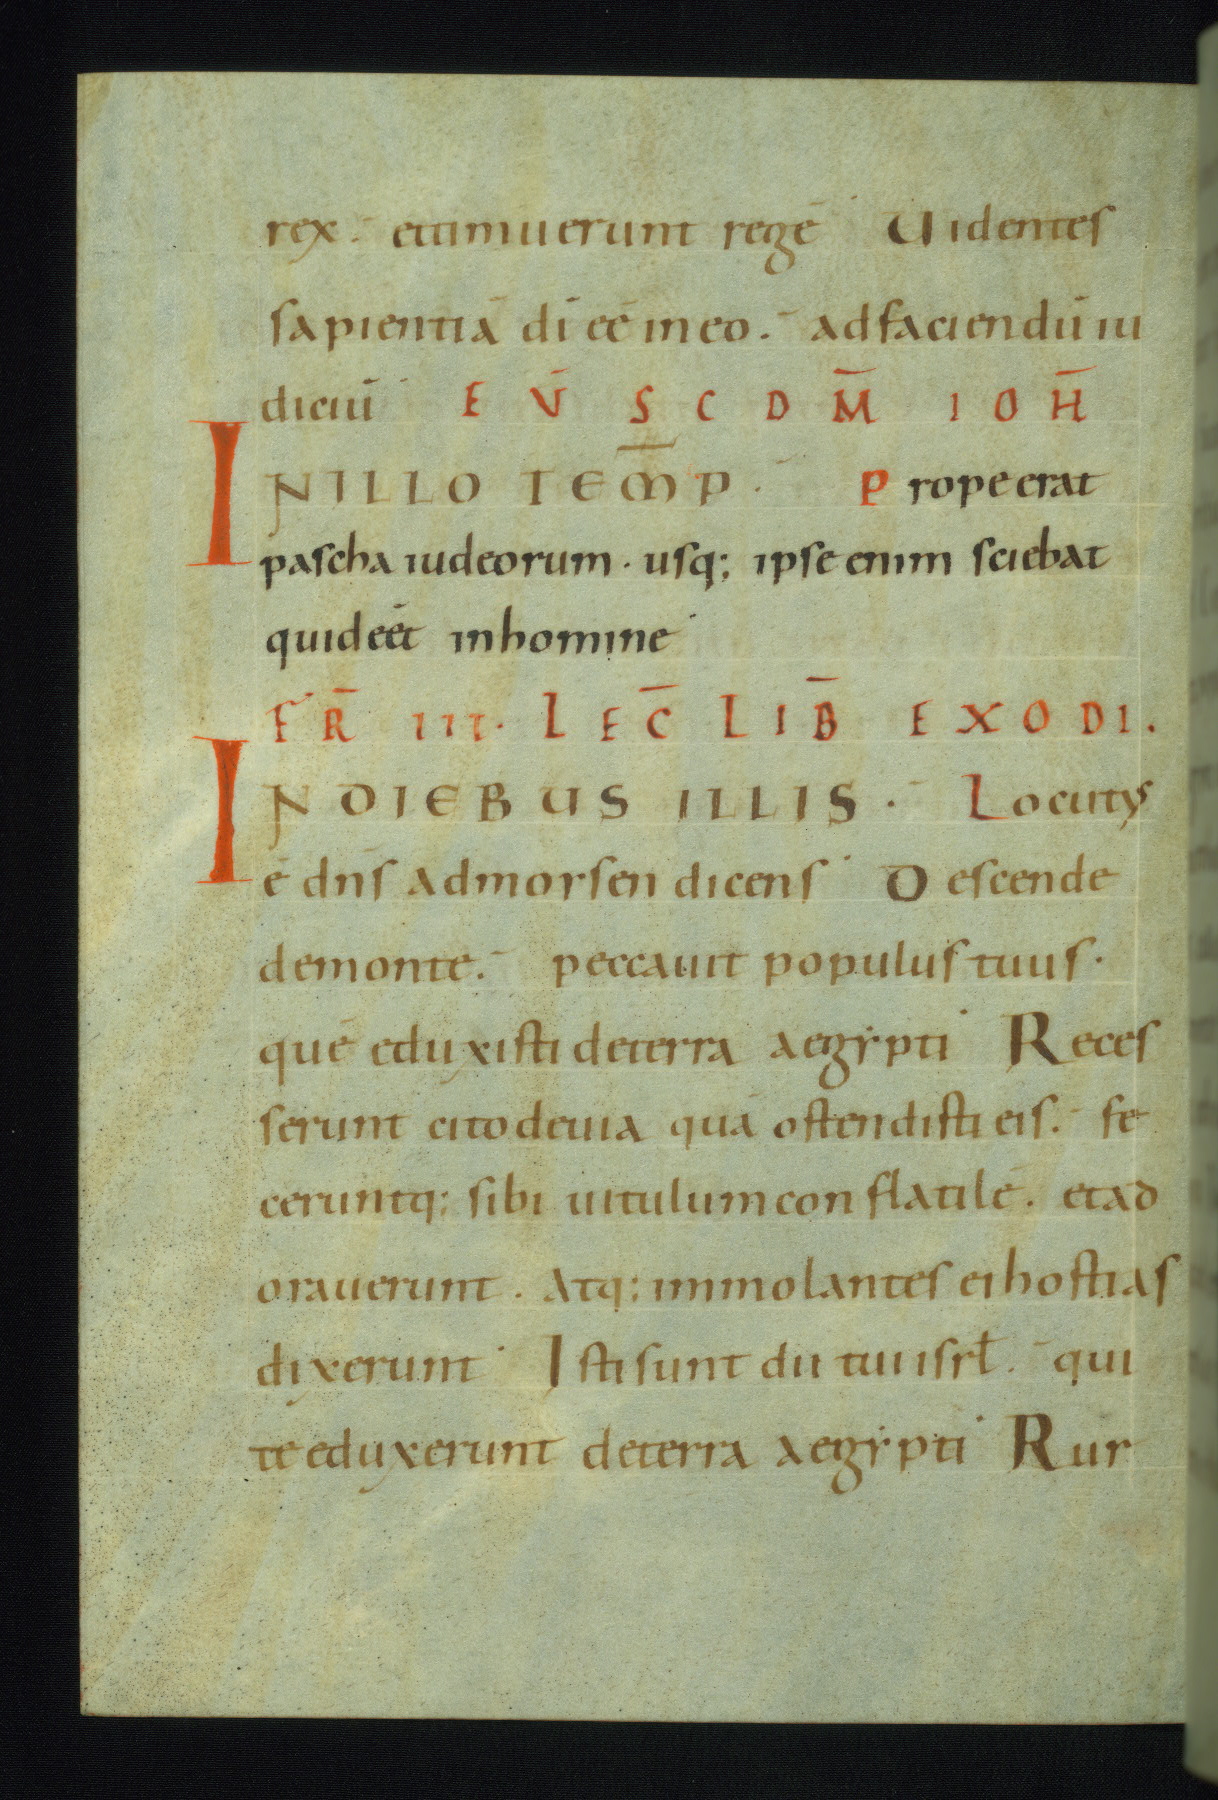 rex. ettimuerunt regē Uidentes
sapientiā dī eē in eo. adfaciendū iu
diciū EV̄ SCDM̄ IOH̄
IN ILLO TEM̄P. Prope erat
pascha iudeorum. usq; ipse enim sciebat
quid eēt in homine
FR̄ III. LEC̄ LIB̄ EXODI.
IN DIEBUS ILLIS. Locutus
ē dn̄s admorsen dicens Descende
demonte. peccauit populus tuus.
quē eduxisti deterra aegẏpti Reces
serunt cito deuia quā ostendisti eis. fe
ceruntq; sibi uitulum conflatilē. etad
orauerunt. Atq; immolantes ei hostias
dixerunt Isti sunt dii tui isrł. qui
te eduxerunt deterra aegẏpti Rur